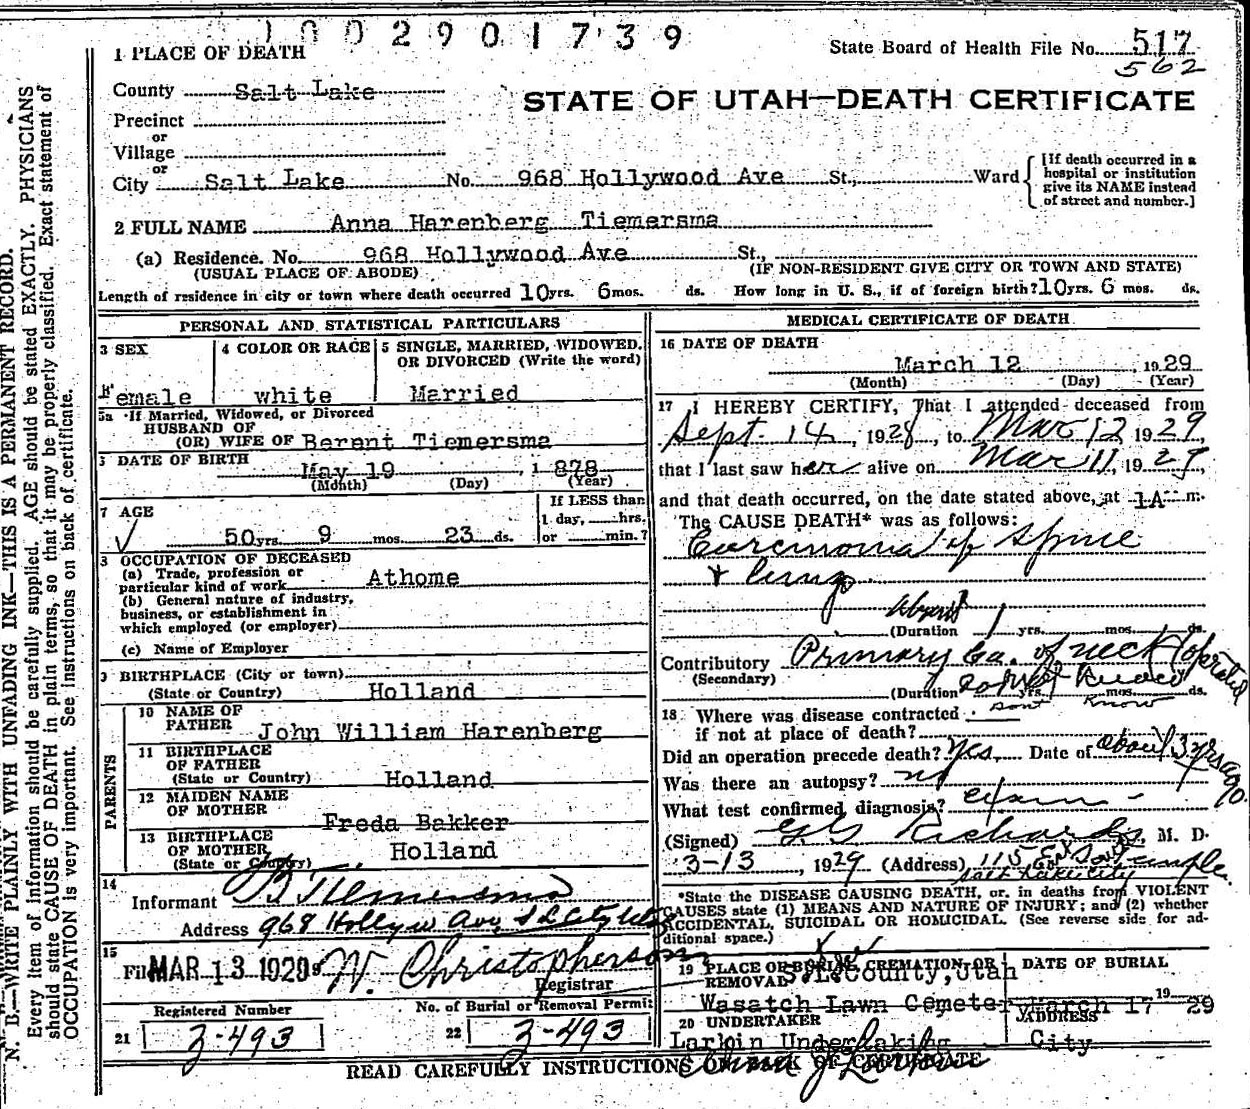 1002901739
State Board of Health File No. 517
562
1 PLACE OF DEATH
County Salt Lake
STATE OF UTAH—DEATH CERTIFICATE
Precinct
or
Village
or
City Salt Lake No. 968 Hollywood Ave St., Ward
[If death occurred in a
hospital or institution
give its NAME instead
of street and number.]
2 FULL NAME Anna Harenberg Tiemersma
(a) Residence. No. 968 Hollywood Ave St.,
(USUAL PLACE OF ABODE) (IF NON-RESIDENT GIVE CITY OR TOWN AND STATE)
Length of residence in city or town where death occurred 10 yrs. 6 mos. ds. How long in U. S., if of foreign birth? 10 yrs. 6 mos. ds.
PERSONAL AND STATISTICAL PARTICULARS
3 SEX
Female
4 COLOR OR RACE
white
5 SINGLE, MARRIED, WIDOWED,
OR DIVORCED (Write the word)
Married
5a If Married, Widowed, or Divorced
HUSBAND OF
(OR) WIFE OF Berent Tiemersma
DATE OF BIRTH
May 19, 1878
(Month) (Day) (Year)
7 AGE
50 yrs. 9 mos. 23 ds.
If LESS than
1 day, hrs.
or min.?
OCCUPATION OF DECEASED
(a) Trade, profession or
particular kind of work Athome
(b) General nature of industry,
business, or establishment in
which employed (or employer)
(c) Name of Employer
BIRTHPLACE (City or town)
(State or Country) Holland
PARENTS
10 NAME OF
FATHER John William Harenberg
11 BIRTHPLACE
OF FATHER
(State or Country) Holland
12 MAIDEN NAME
OF MOTHER Freda Bakker
13 BIRTHPLACE
OF MOTHER
(State or Country) Holland
14
Informant B Tiemersma
Address 968 Hollyw Ave, S L City
15
Filed MAR 13 1929 W. Christopherson
Registrar
Registered Number
21 3-493
No. of Burial or Removal Permit
22 3-493
MEDICAL CERTIFICATE OF DEATH
16 DATE OF DEATH
March 12, 1929
(Month) (Day) (Year)
17 I HEREBY CERTIFY, That I attended deceased from
Sept. 14, 1928, to Mar 12 1929
that I last saw her alive on Mar 11, 1929,
and that death occurred, on the date stated above, at 1A m.
The CAUSE DEATH* was as follows:
Carcinoma of Spine
& lung
about
(Duration 1 yrs. mos. ds.
Contributory Primary Ca. of neck (operated
(Secondary)
(Duration yrs. mos. ds.
dont know
18 Where was disease contracted
if not at place of death?
Did an operation precede death? Yes. Date of about 3 yrs ago
Was there an autopsy? no
What test confirmed diagnosis? exam
(Signed) G G Richards, M. D.
3-13, 1929 (Address) 115 E So Temple
Salt Lake City
*State the DISEASE CAUSING DEATH, or, in deaths from VIOLENT
CAUSES state (1) MEANS AND NATURE OF INJURY; and (2) whether
ACCIDENTAL, SUICIDAL OR HOMICIDAL. (See reverse side for ad-
ditional space.)
19 PLACE OF BURIAL CREMATION OR
REMOVAL S.L. County, Utah
Wasatch Lawn Cemetery
DATE OF BURIAL
March 17 1929
20 UNDERTAKER
Larkin Undertaking
ADDRESS
City
READ CAREFULLY INSTRUCTIONS ON BACK OF CERTIFICATE
N. B.—WRITE PLAINLY WITH UNFADING INK—THIS IS A PERMANENT RECORD.
Every item of information should be carefully supplied. AGE should be stated EXACTLY. PHYSICIANS
should state CAUSE OF DEATH in plain terms, so that it may be properly classified. Exact statement of
OCCUPATION is very important. See instructions on back of certificate.